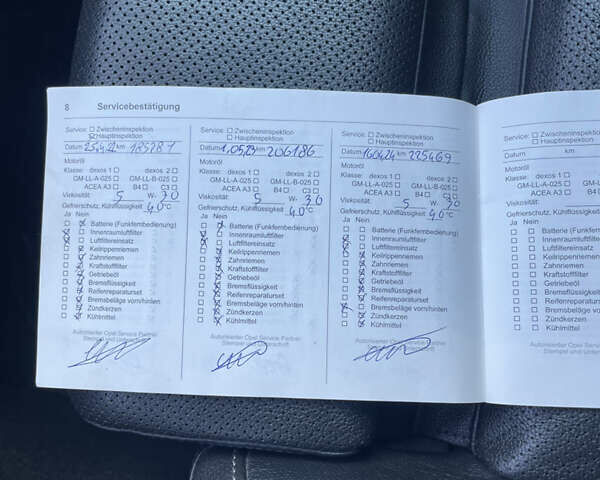 8 Servicebestätigung
Service: Zwischeninspektion
Hauptinspektion
Datum 25.4.22 km 185281
Motoröl
Klasse: dexos 1 dexos 2
GM-LL-A-025 GM-LL-B-025
ACEA A3 B4 C3
Viskosität: 5 W- 30
Gefrierschutz, Kühlflüssigkeit 40 °C
Ja Nein
Batterie (Funkfernbedienung)
Innenraumluftfilter
Luftfiltereinsatz
Keilrippenriemen
Zahnriemen
Kraftstofffilter
Getriebeöl
Bremsflüssigkeit
Reifenreparaturset
Bremsbeläge vorn/hinten
Zündkerzen
Kühlmittel
Autorisierter Opel Service Partner
Stempel und
Service: Zwischeninspektion
Hauptinspektion
Datum 1.05.23 km 206186
Motoröl
Klasse: dexos 1 dexos 2
GM-LL-A-025 GM-LL-B-025
ACEA A3 B4 C3
Viskosität: 5 W- 30
Gefrierschutz, Kühlflüssigkeit 40 °C
Ja Nein
Batterie (Funkfernbedienung)
Innenraumluftfilter
Luftfiltereinsatz
Keilrippenriemen
Zahnriemen
Kraftstofffilter
Getriebeöl
Bremsflüssigkeit
Reifenreparaturset
Bremsbeläge vorn/hinten
Zündkerzen
Kühlmittel
Autorisierter Opel Service Partner
Stempel und Unterschrift
Service: Zwischeninspektion
Hauptinspektion
Datum 16.04.24 km 225469
Motoröl
Klasse: dexos 1 dexos 2
GM-LL-A-025 GM-LL-B-025
ACEA A3 B4 C3
Viskosität: 5 W- 30
Gefrierschutz, Kühlflüssigkeit 40 °C
Ja Nein
Batterie (Funkfernbedienung)
Innenraumluftfilter
Luftfiltereinsatz
Keilrippenriemen
Zahnriemen
Kraftstofffilter
Getriebeöl
Bremsflüssigkeit
Reifenreparaturset
Bremsbeläge vorn/hinten
Zündkerzen
Kühlmittel
Autorisierter Opel Service Partner
Stempel und Unterschrift
Service: Zwischeninspektion
Hauptinspektion
Datum km
Motoröl
Klasse: dexos 1
GM-LL-A-025
ACEA A3
Viskosität:
Gefrierschutz, Kühlflüssigkeit
Ja Nein
Batterie (Funkfernbed
Innenraumluftfilter
Luftfiltereinsatz
Keilrippenriemen
Zahnriemen
Kraftstofffilter
Getriebeöl
Bremsflüssigkeit
Reifenreparaturset
Bremsbeläge vorn/h
Zündkerzen
Kühlmittel
Autorisierter Opel Service
Stempel und Unter